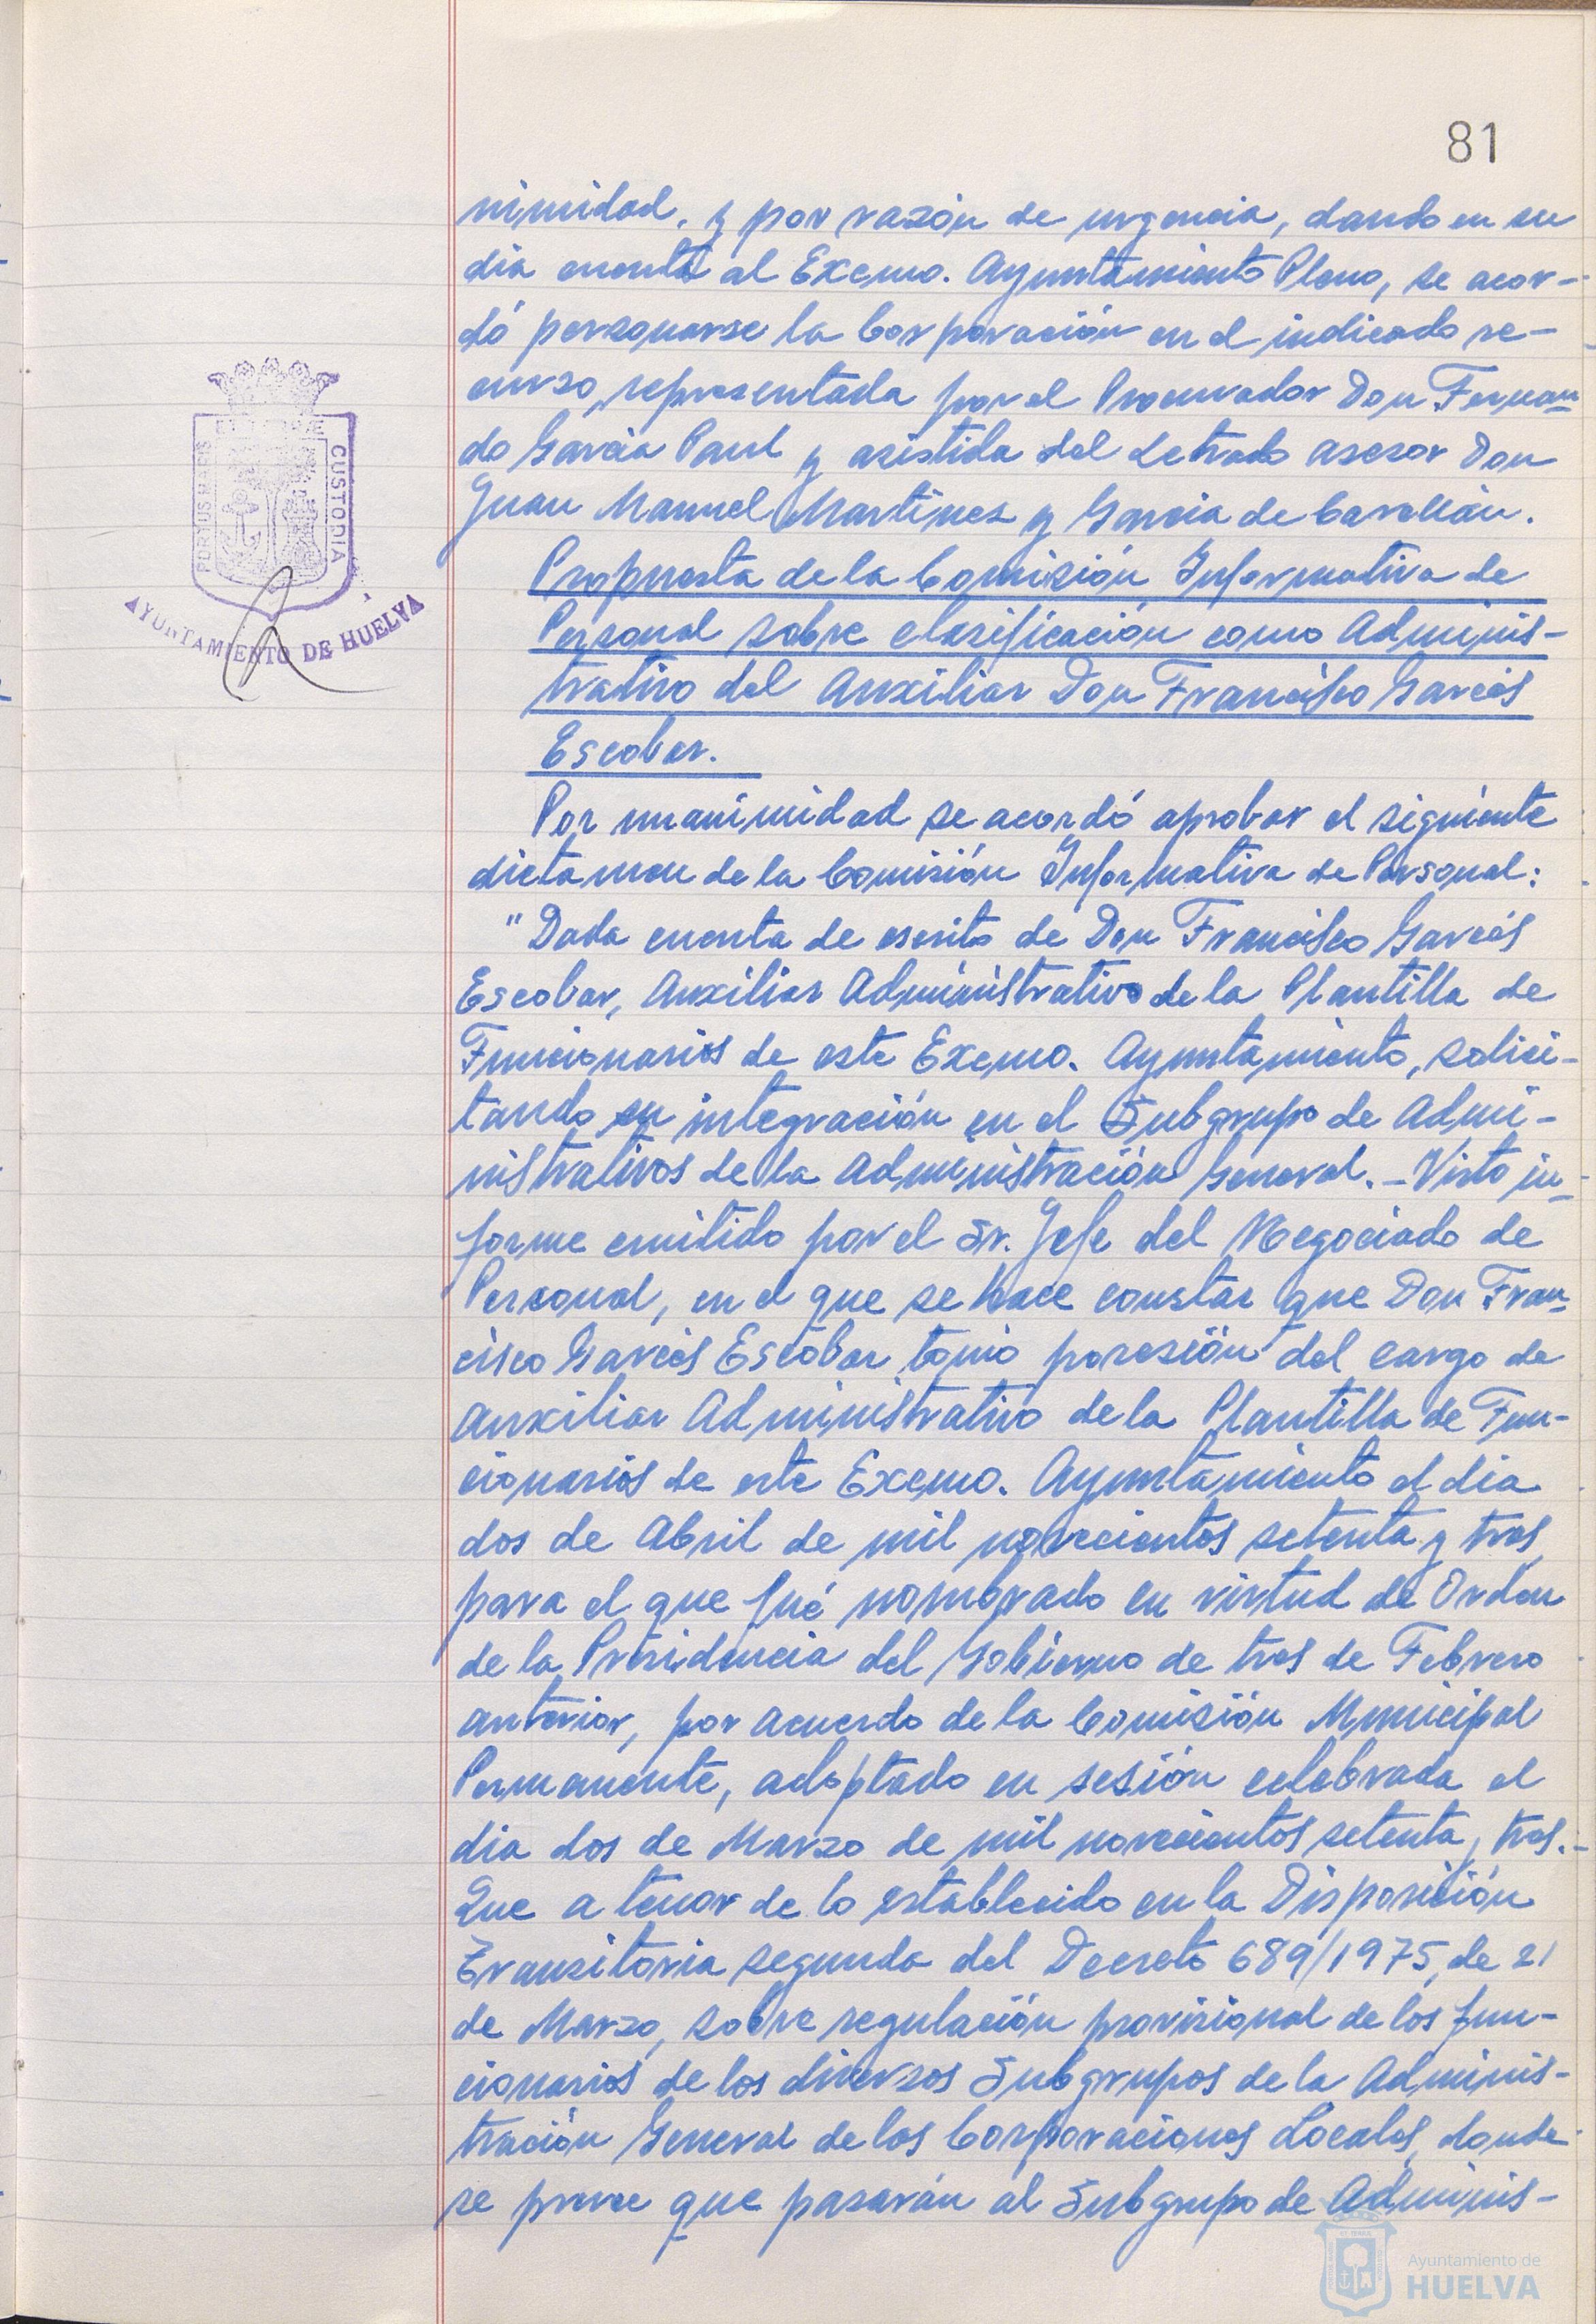 81
nimidad, y por razón de urgencia, dando en su
dia cuenta al Excmo. Ayuntamiento Pleno, se acor-
dó personarse la Corporación en el indicado re-
curso, representada por el Procurador Don Fernan-
do García Paul y asistida del Letrado asesor Don
Juan Manuel Martínez y García de
Propuesta de la Comisión Informativa de
Personal sobre clasificación como Adminis-
trativo del Auxiliar Don Francisco Garcés
Escobar.
Por unanimidad se acordó aprobar el siguiente
dictamen de la Comisión Informativa de Personal:
"Dada cuenta de escrito de Don Francisco Garcés
Escobar, Auxiliar Administrativo de la Plantilla de
Funcionarios de este Excmo. Ayuntamiento, solici-
tando su integración en el Subgrupo de Admi-
nistrativos de la Administración General.- Visto in-
forme emitido por el Sr. Jefe del Negociado de
Personal, en el que se hace constar que Don Fran-
cisco Garcés Escobar tomó posesión del cargo de
Auxiliar Administrativo de la Plantilla de Fun-
cionarios de este Excmo. Ayuntamiento el dia
dos de Abril de mil novecientos setenta y tres,
para el que fué nombrado en virtud de Orden
de la Presidencia del Gobierno de tres de Febrero
anterior, por acuerdo de la Comisión Municipal
Permanente, adoptado en sesión celebrada el
dia dos de Marzo de mil novecientos setenta y tres.-
Que a tenor de lo establecido en la Disposición
Transitoria segunda del Decreto 689/1975, de 21
de Marzo, sobre regulación provisional de los fun-
cionarios de los diversos Subgrupos de la Adminis-
tración General de las Corporaciones Locales, donde
se preve que pasarán al Subgrupo de Adminis-
PORTUS MARIS
CUSTODIA
AYUNTAMIENTO DE HUELVA
Ayuntamiento de
HUELVA